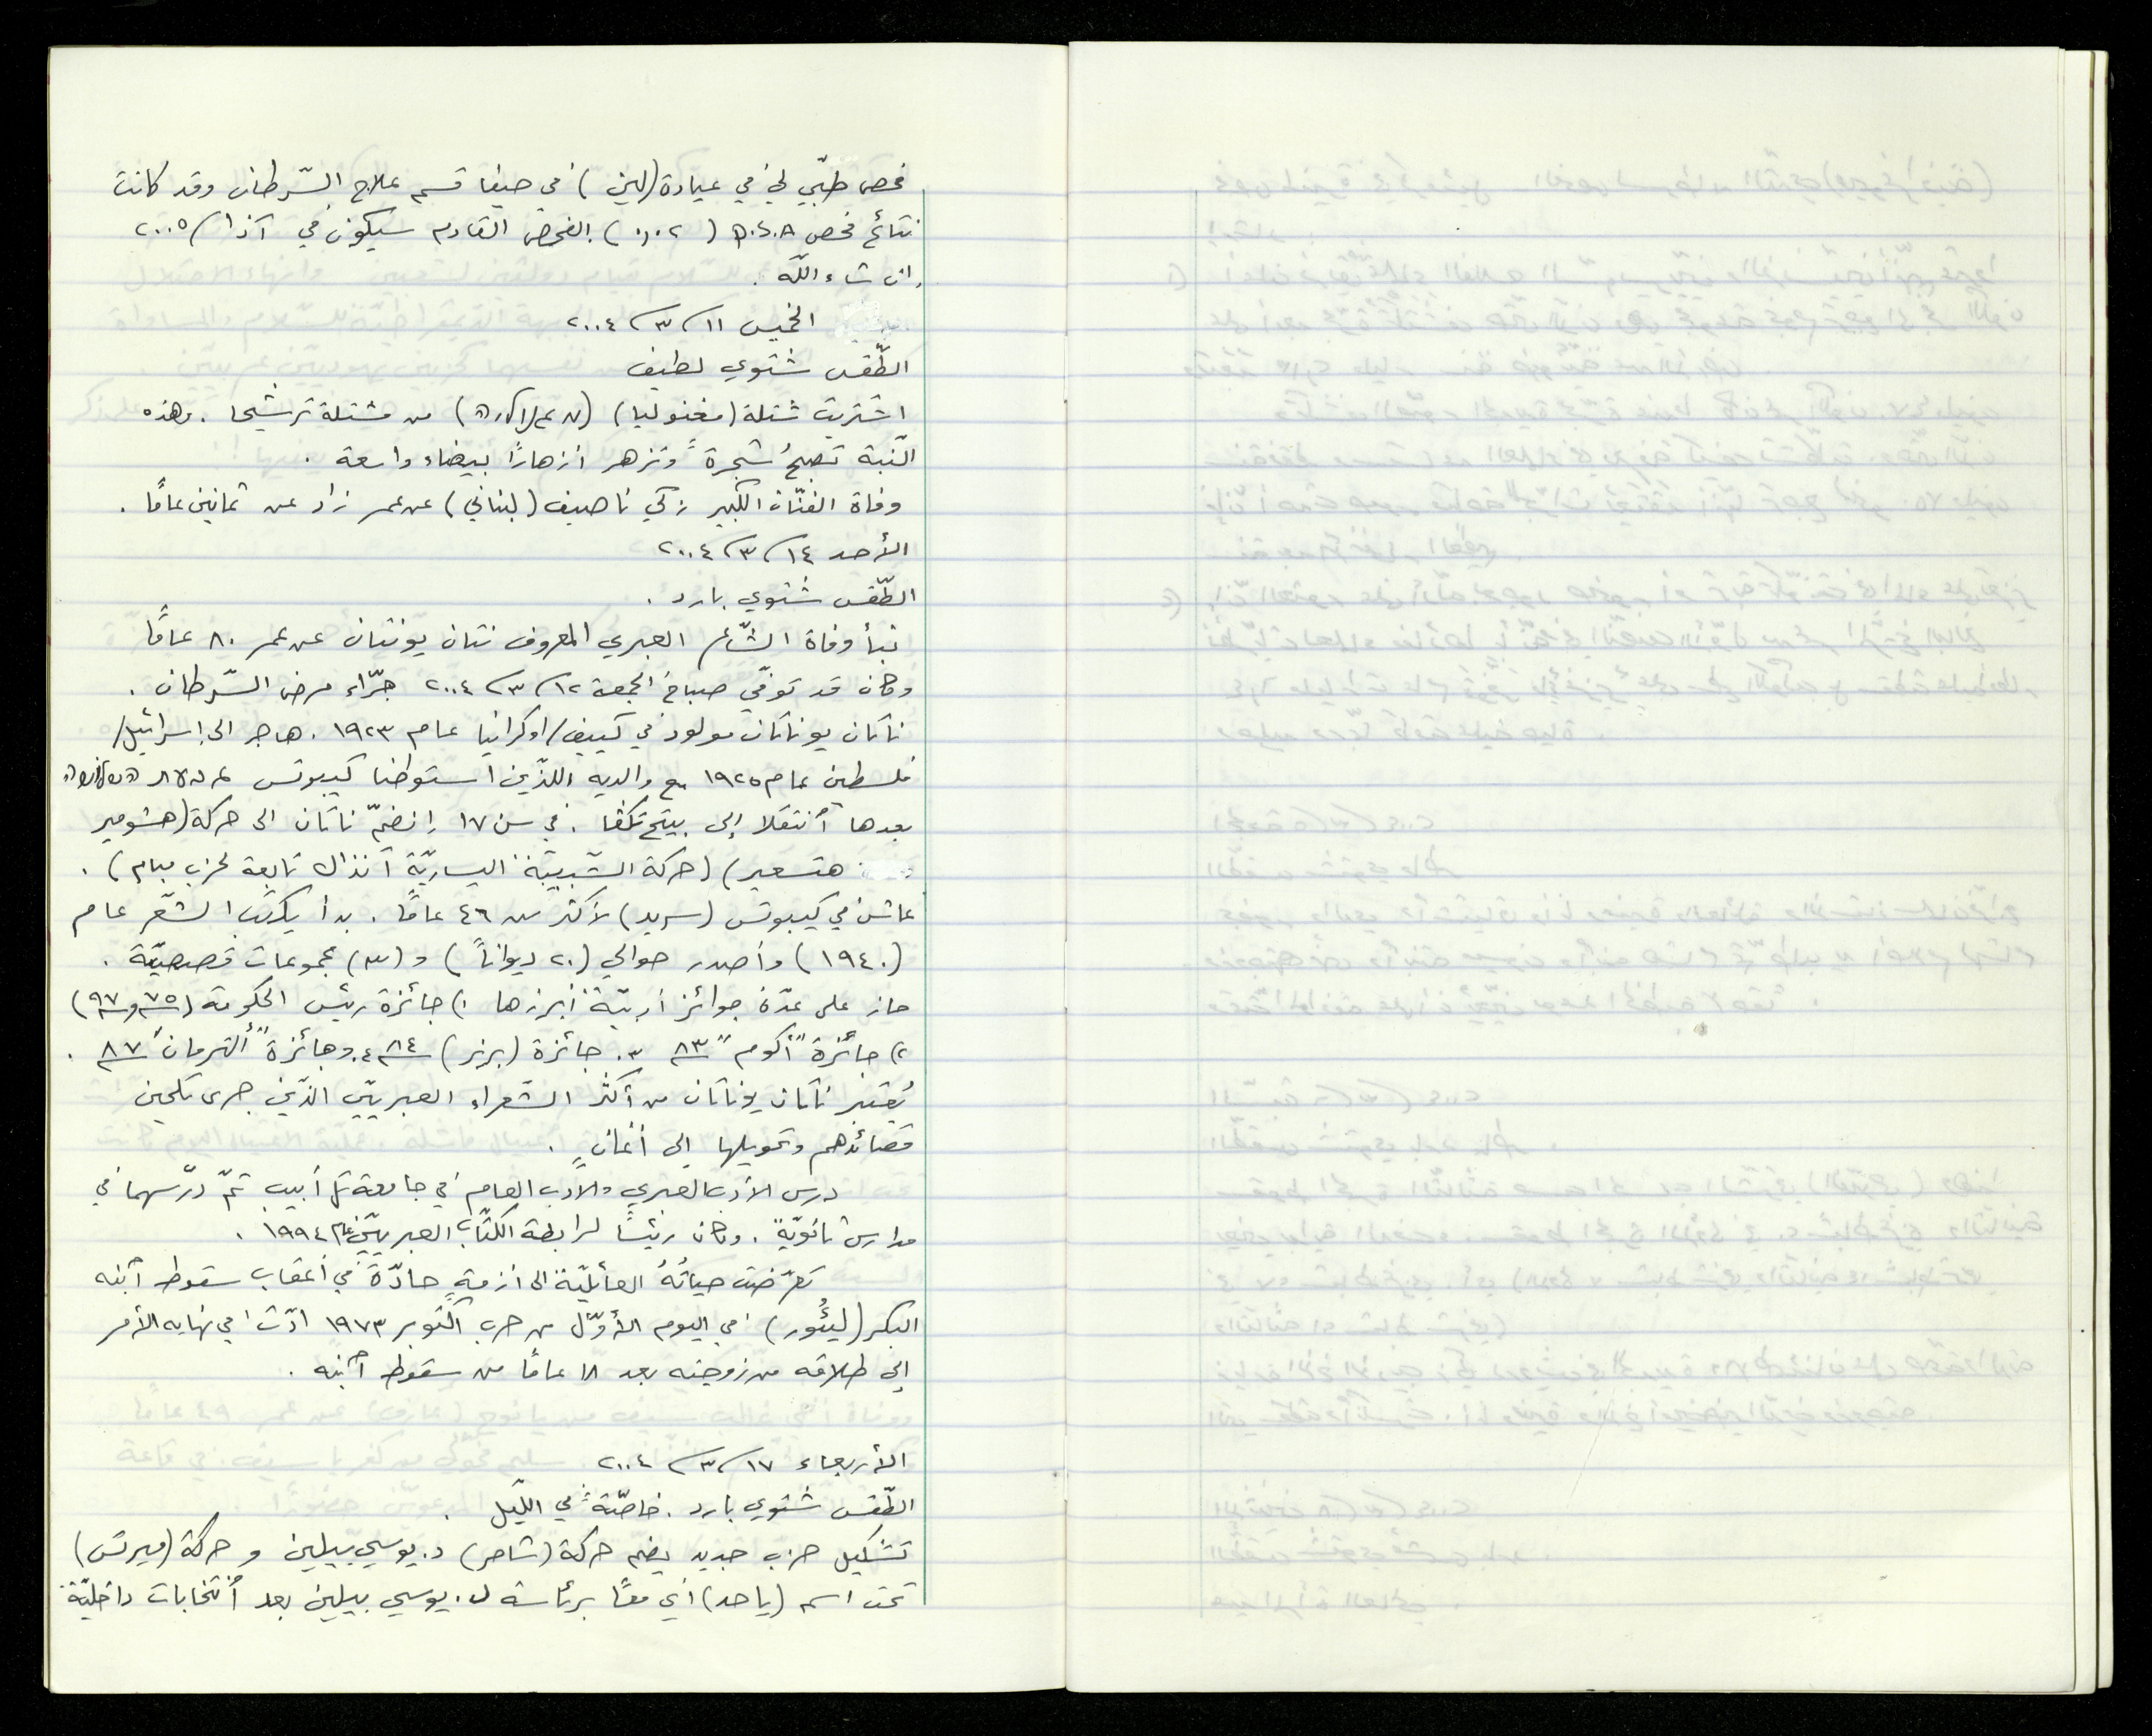 فحص طبّي لي في عيادة (لين) في حيفا قسم علاج السّرطان وقد كانت
نتائج فحص P.S.A (٠،٠٢) الفحص القادم سيكون في آذار/٢٠٠٥
إن شاء اللّه.
الخميس ١١/٣/٢٠٠٤
الطّقس شتوي لطيف
اشتريت شتلة (مغنوليا) من مشتلة ترشيحا. وهذه
النّبتة تصبحُ شجرةً وتزهر أزهارًا بيضاء واسعة.
وفاة الفنّان الكبير زكي ناصيف (لبناني) عن عمر زاد عن ثمانين عامًا.
الأحد ١٤/٣/٢٠٠٤
الطّقس شتوي بارد.
نبأ وفاة الشّاعر العبري المعروف نتان يونتان عن عمر ٨٠ عامًا
وكان قد توفّي صباح الجمعة ١٢/٣/٢٠٠٤ جرّاء مرض السّرطان.
ناتان يوناتان مولود في كييف/اوكرانيا عام ١٩٢٣. هاجر الى اسرائيل/
فلسطين عام ١٩٢٥ مع والديه اللذين استوطنا كيبوتس
بعدها ٱنتقلا إلى بيتح تكفا. في سن ١٧ إنضمّ ناتان الى حركة (هشومير
هتسعير) (حركة الشّبيبة اليساريّة آنذاك تابعة لحزب مبام).
عاش في كيبوتس (سريد) لأكثر من ٤٦ عامًا. بدأ يكتب الشّعر عام
(١٩٤٠) وأصدر حوالي (٢٠ ديوانًا) و (٣) مجموعات قصصيّة.
حاز على عدّة جوائز أدبيّة أبرزها ١) جائزة رئيس الحكومة (٧٥ و ٩٧)
٢) جائزة "أكوم" ٨٣ ٣. جائزة (برنر) ٨٤ ٤. وجائزة "ألترمان" ٨٧.
يُعتبر ناتان يوناتان من أكثر الشّعراء العبريّين الذين جرى تلحين
قصائدهم وتحويلها إلى أغانٍ.
درس الأدب العبري والأدب العام في جامعة تل أبيب ثمّ درّسهما في
مدارس ثانويّة. وكان رئيسًا لرابطة الكتّاب العبريّين عام ١٩٩٤.
تعرّضت حياتُهُ العائليّة الى أزمةٍ حادّة في أعقاب سقوط ٱبنه
البكر (ليئُور) في اليوم الأوّل من حرب اكتوبر ١٩٧٣ ادّت في نهاية الأمر
إلى طلاقه من زوجته بعد ١٨ عامًا من سقوط ٱبنه.
الأربعاء ١٧/٣/٢٠٠٤
الطّقس شتوي بارد. خاصّة في اللّيل.
تشكيل حزب جديد يضم حركة (شاحر) د. يوسي بيلين و حركة (ميرتس)
تحت اسم (ياحد) أي معًا برئاسة د. يوسي بيلين بعد ٱنتخابات داخليّة